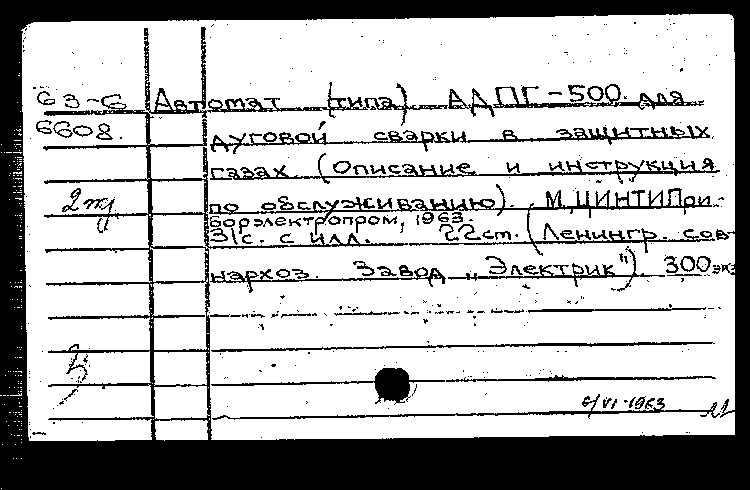 63-6 Автомат (типа) АДПГ-500 для
6608. дуговой сварки в защитных
газах (Описание и инструкция
2 по обслуживанию). М, ЦИНТИПри-
борэлектропром, 1963.
31с. с илл. 22ст. (Ленингр. сов-
нархоз. Завод „Электрик"). 300 экз
6/VI-1963